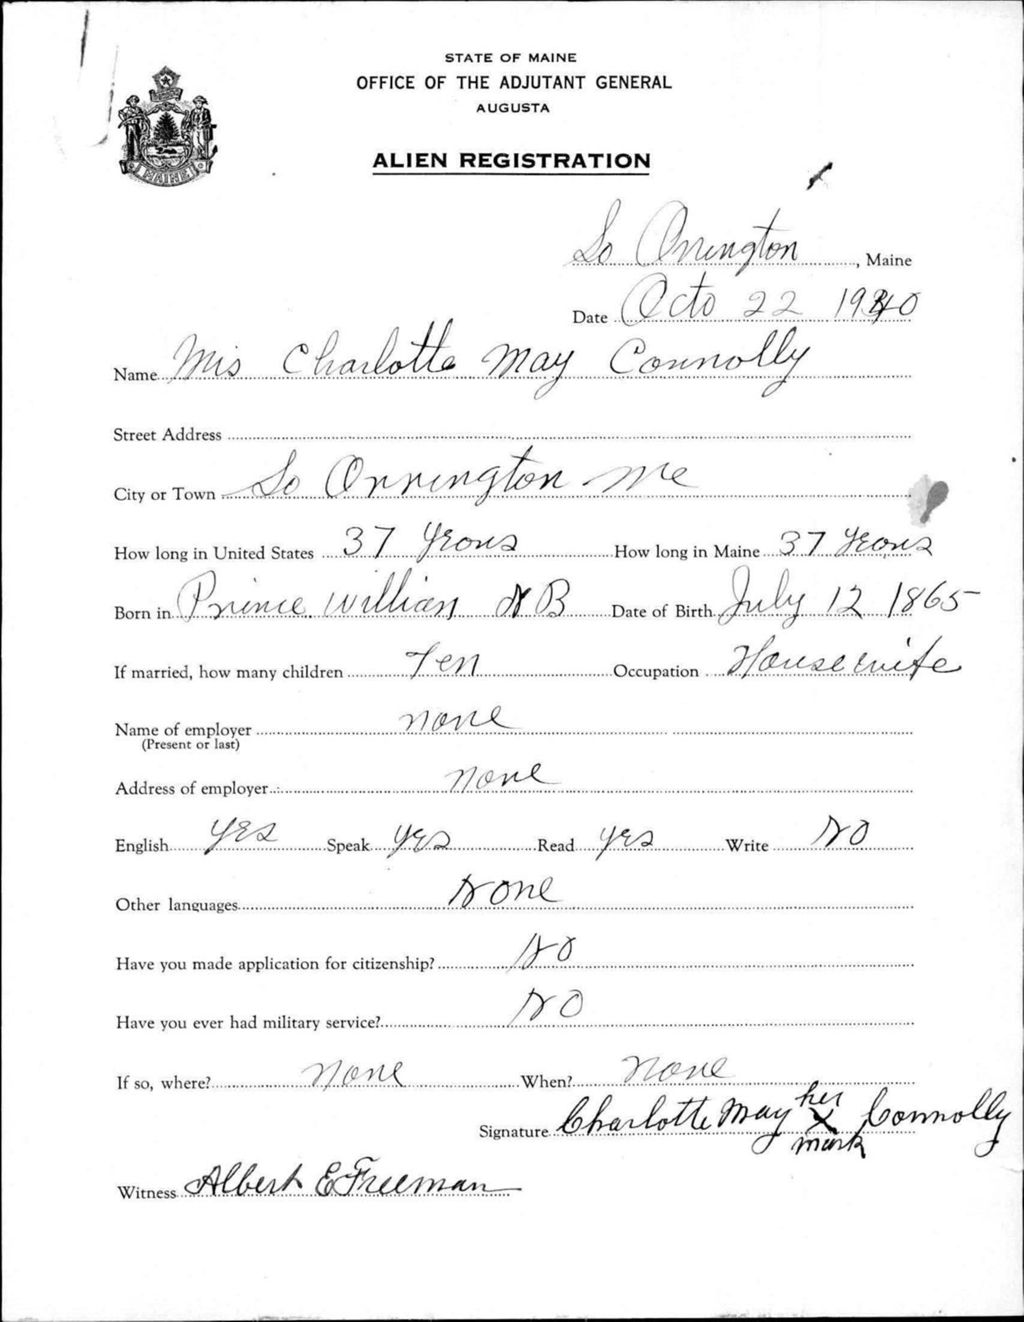 STATE OF MAINE
OFFICE OF THE ADJUTANT GENERAL
AUGUSTA
ALIEN REGISTRATION
MAINE
So Orrington, Maine
Date Octo 22 1940
Name Mis Charlotte May Connolly
Street Address
City or Town So Orrington Me
How long in United States 37 Years How long in Maine 37 Years
Born in Prince William N B Date of Birth July 12 1865
If married, how many children Ten Occupation Housewife
Name of employer none
(Present or last)
Address of employer none
English Yes Speak Yes Read Yes Write No
Other languages None
Have you made application for citizenship? No
Have you ever had military service? No
If so, where? none When? none
Signature Charlotte May her X mark Connolly
Witness Albert E Freeman